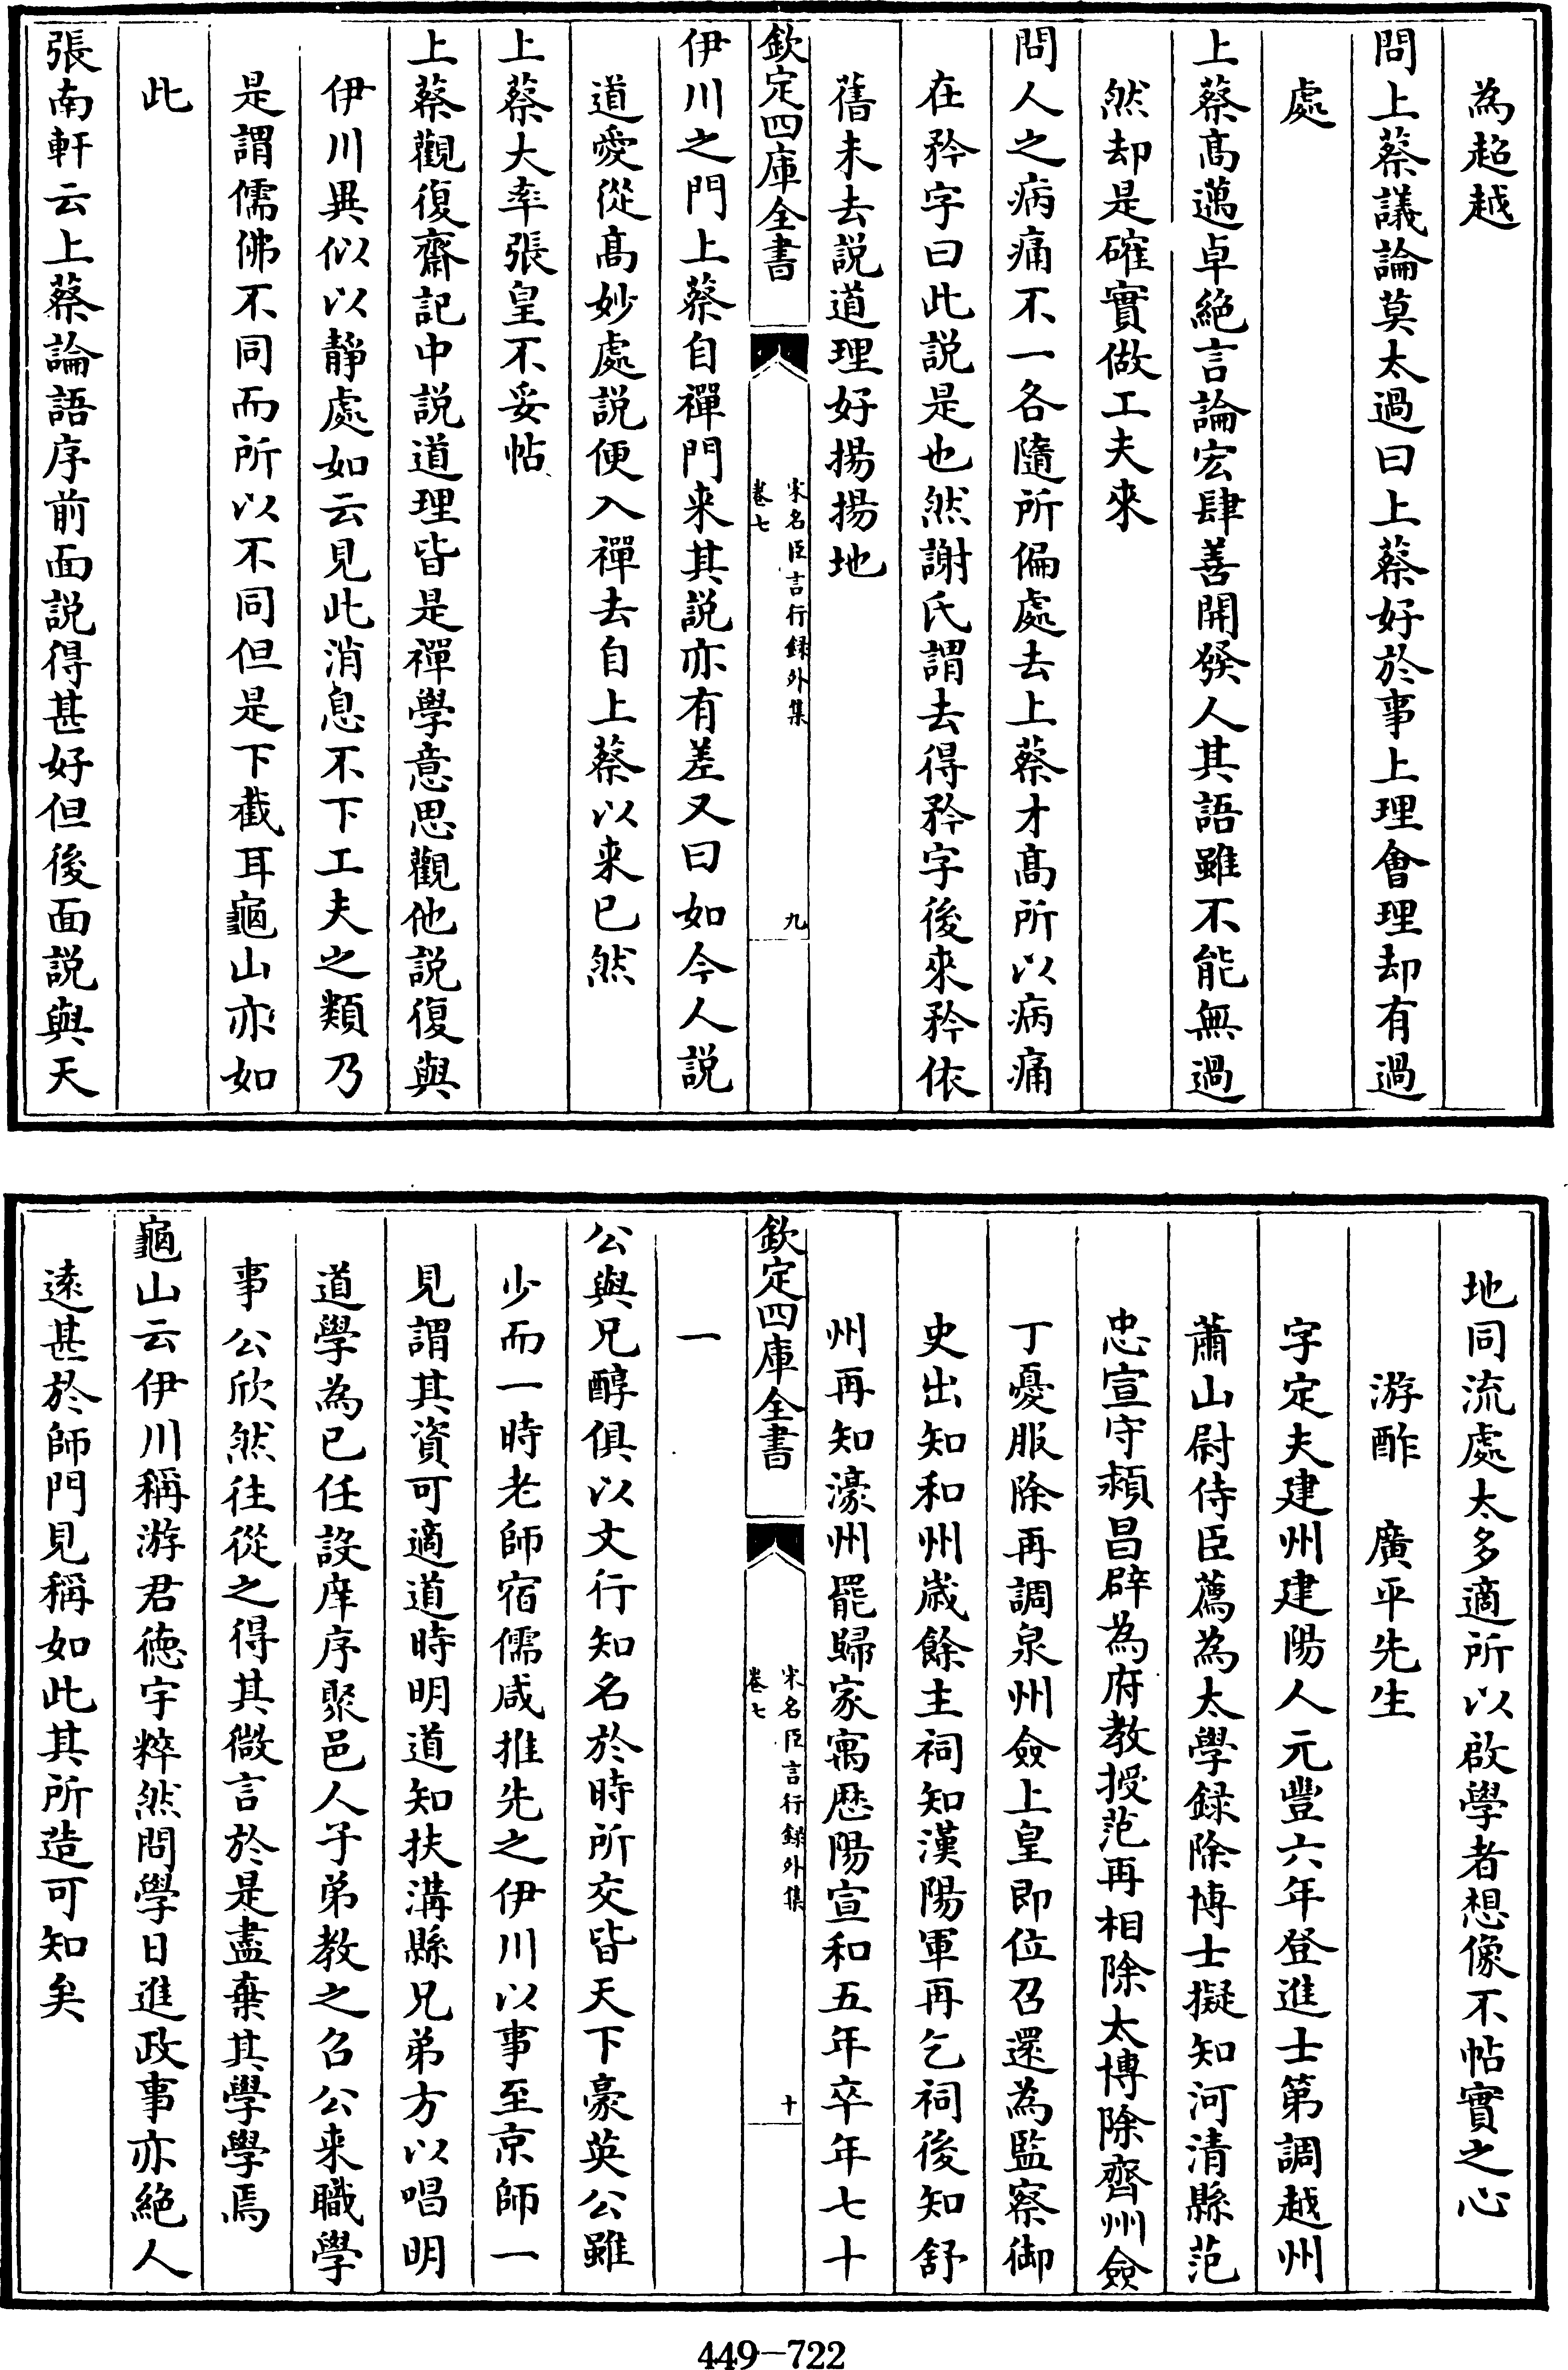 為超越
問上蔡議論莫太過曰上蔡好於事上理會理却有過
處
上蔡髙邁卓絶言論宏肆善開發人其語雖不能無過
然却是確實做工夫來
問人之病痛不一各隨所偏處去上蔡才髙所以病痛
在矜字曰此説是也然謝氏謂去得矜字後來矜依
舊未去説道理好揚揚地
欽定四庫全書
宋名臣言行録外集
卷七
九
伊川之門上蔡自禪門来其説亦有差又曰如今人説
道愛從髙妙處説便入禪去自上蔡以来已然
上蔡大率張皇不妥帖
上蔡觀復齋記中説道理皆是禪學意思觀他説復與
伊川異似以静處如云見此消息不下工夫之類乃
是謂儒佛不同而所以不同但是下截耳龜山亦如
此
張南軒云上蔡論語序前面説得甚好但後面説與天
地同流處太多適所以啟學者想像不帖實之心
游酢 廣平先生
字定夫建州建陽人元豐六年登進士第調越州
蕭山尉侍臣薦為太學録除博士擬知河清縣范
忠宣守潁昌辟為府教授范再相除太博除齊州僉
丁憂服除再調泉州僉上皇即位召還為監察御
史出知和州歲餘主祠知漢陽軍再乞祠後知舒
州再知濠州罷歸家寓歴陽宣和五年卒年七十
一
欽定四庫全書
宋名臣言行録外集
卷七
十
公與兄醇俱以文行知名於時所交皆天下豪英公雖
少而一時老師宿儒咸推先之伊川以事至京師一
見謂其資可適道時明道知扶溝縣兄弟方以唱明
道學為已任設庠序聚邑人子弟教之召公来職學
事公欣然往從之得其微言於是盡棄其學學焉
龜山云伊川稱游君徳宇粹然問學日進政事亦絶人
逺甚於師門見稱如此其所造可知矣
449-722